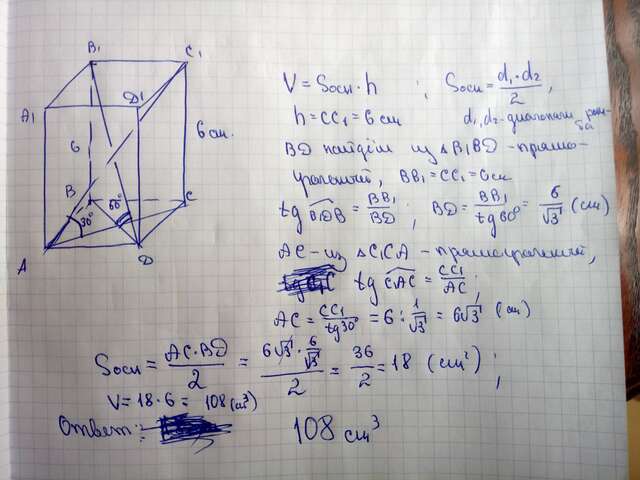 B₁
C₁
A₁
D₁
6
6 см.
B
60°
C
30°
A
D
V = Sосн · h ; Sосн = d₁·d₂/2,
h = CC₁ = 6 см d₁,d₂-диагонали ромба
BD найдём из △B₁BD - прямо-
угольный, BB₁ = CC₁ = 6см
tg B₁DB = BB₁/BD; BD = BB₁/tg60° = 6/√3 (см)
AC - из △C₁CA - прямоугольный,
tg C₁AC = CC₁/AC;
AC = CC₁/tg30° = 6 : 1/√3 = 6√3 (см)
Sосн = AC·BD/2 = 6√3 · 6/√3/2 = 36/2 = 18 (см²) ;
V = 18 · 6 = 108 (см³)
Ответ: 108 см³